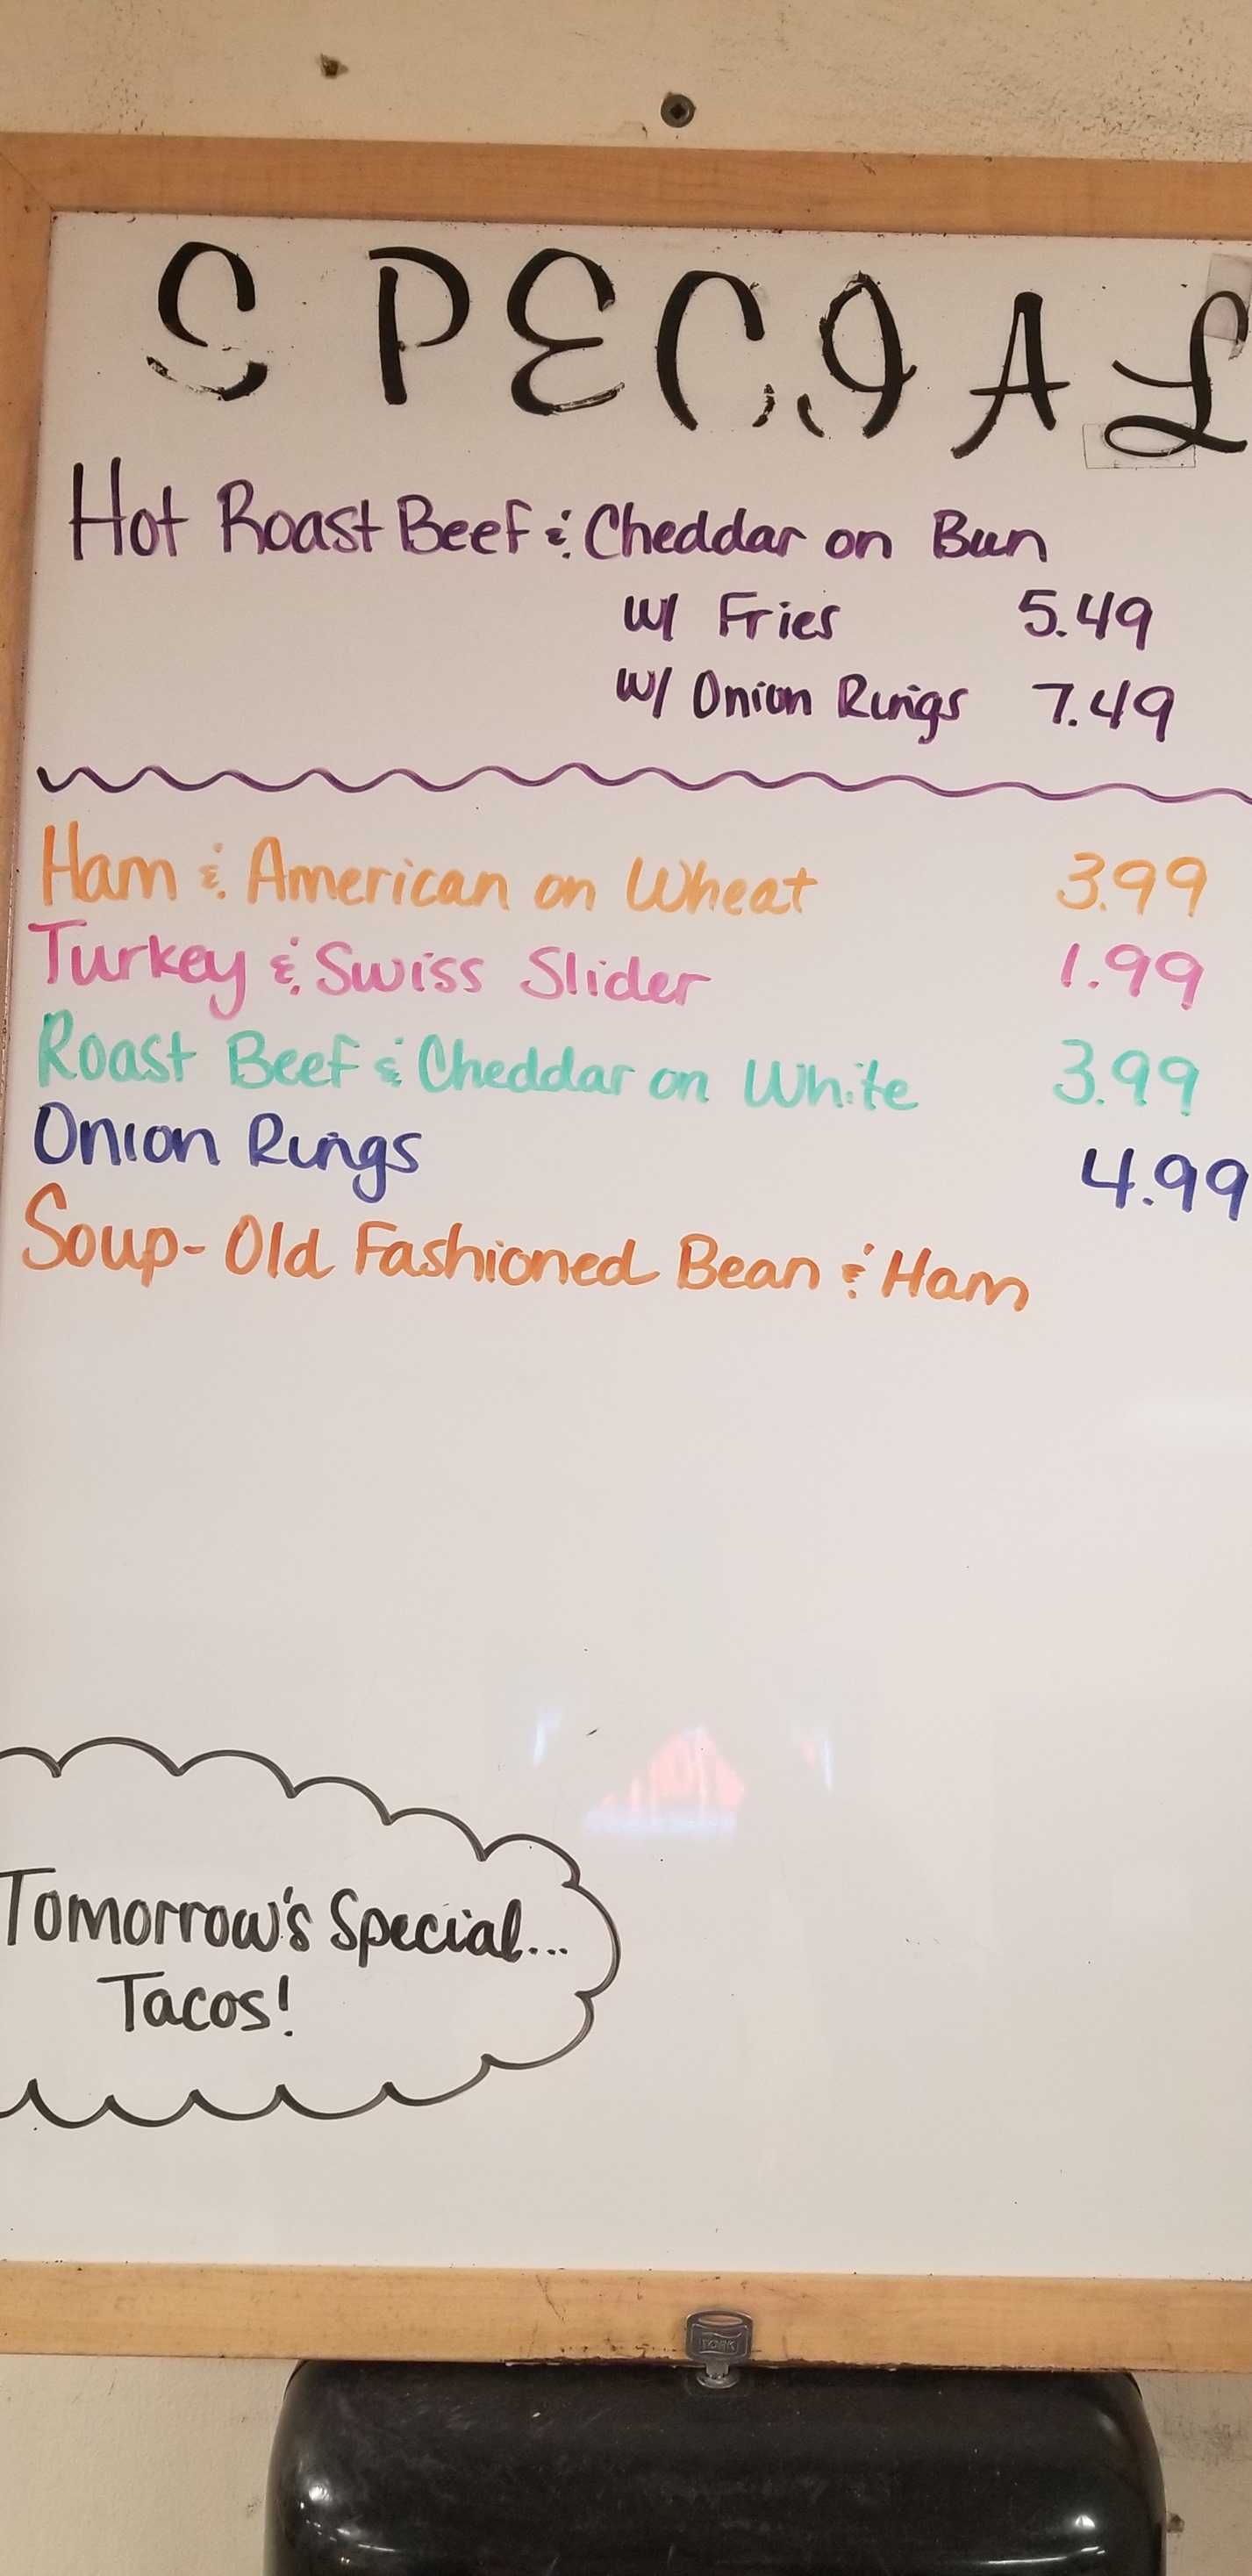 SPECIAL
Hot Roast Beef & Cheddar on Bun
w/ Fries 5.49
w/ Onion Rings 7.49
Ham & American on Wheat 3.99
Turkey & Swiss Slider 1.99
Roast Beef & Cheddar on White 3.99
Onion Rings 4.99
Soup- Old Fashioned Bean & Ham
Tomorrow's Special...
Tacos!
TORK